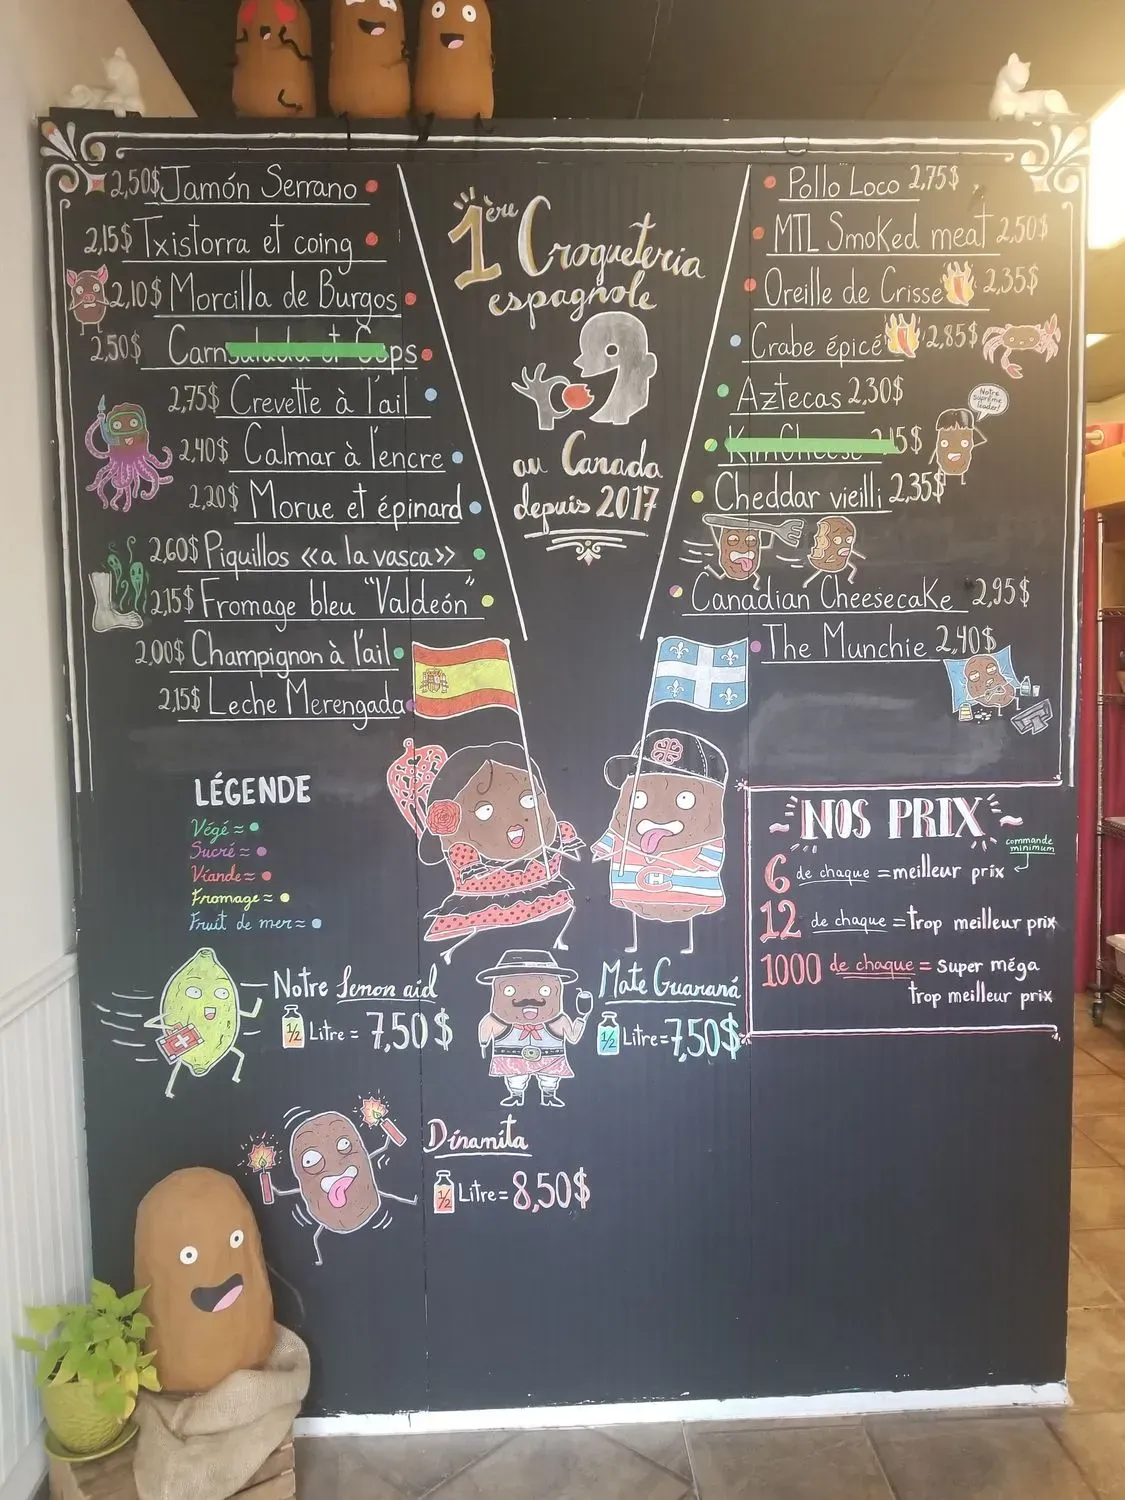 2,50$ Jamón Serrano
2,15$ Txistorra et coing
2,10$ Morcilla de Burgos
2,50$ Carn
2,75$ Crevette à l'ail
2,40$ Calmar à l'encre
2,20$ Morue et épinard
2,60$ Piquillos «a la vasca»
2,15$ Fromage bleu "Valdeón"
2,00$ Champignon à l'ail
2,15$ Leche Merengada
1ère Croqueteria
espagnole
au Canada
depuis 2017
Pollo Loco 2,75$
MTL Smoked meat 2,50$
Oreille de Crisse 2,35$
Crabe épicé 2,85$
Aztecas 2,30$
Notre
Suprême
leader!
KimCheese 2,15$
Cheddar vieilli 2,35$
Canadian Cheesecake 2,95$
The Munchie 2,40$
LÉGENDE
Végé =
Sucré =
Viande =
Fromage =
Fruit de mer =
NOS PRIX
commande
minimum
6 de chaque = meilleur prix
12 de chaque = trop meilleur prix
1000 de chaque = super méga
trop meilleur prix
Notre Lemon aid
1/2 Litre = 7,50$
Mate Guaraná
1/2 Litre = 7,50$
Dinamita
1/2 Litre = 8,50$